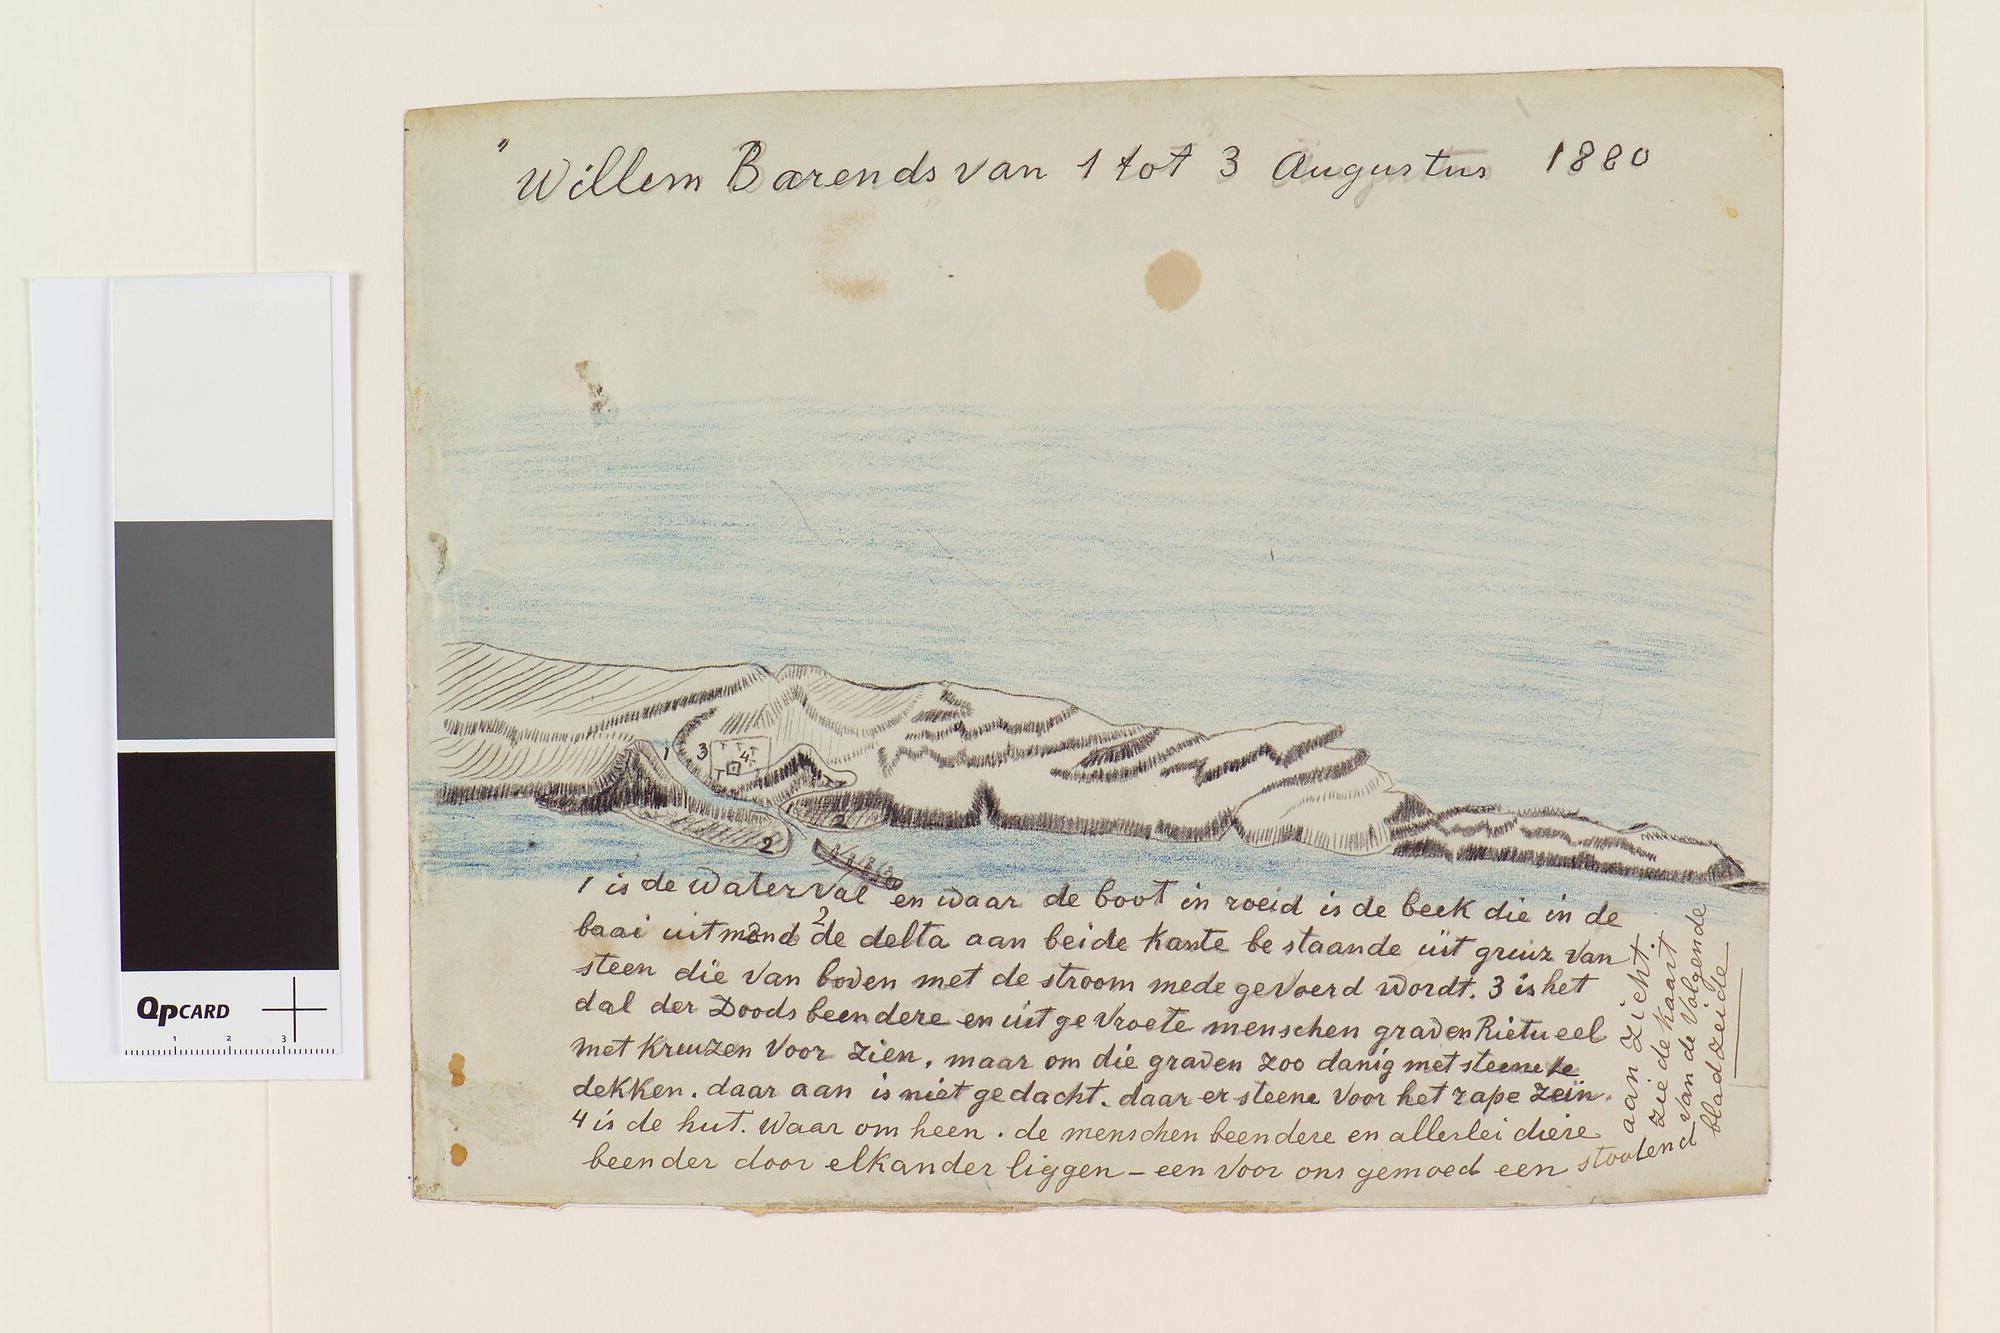 " Willem Barends van 1 tot 3 Augustus 1880
1 is de waterval en waar de boot in roeid is de beek die in de
baai uitmond 2 de delta aan beide kante be staande uit gruiz van
steen die van boven met de stroom mede gevoerd wordt. 3 is het
dal der Doods beendere en uit ge vroete menschen graven Rietueel
met kruizen voor zien, maar om die graven zoo danig met steene te
dekken. daar aan is niet gedacht. daar er steene voor het rape zein.
4 is de hut. waar om heen. de menschen beendere en allerlei diere
beender door elkander liggen – een voor ons gemoed een stootend
aan zicht
zie de kaart
van de volgende
bladzeide
1
3
4
2
2
QpCARD
1 2 3